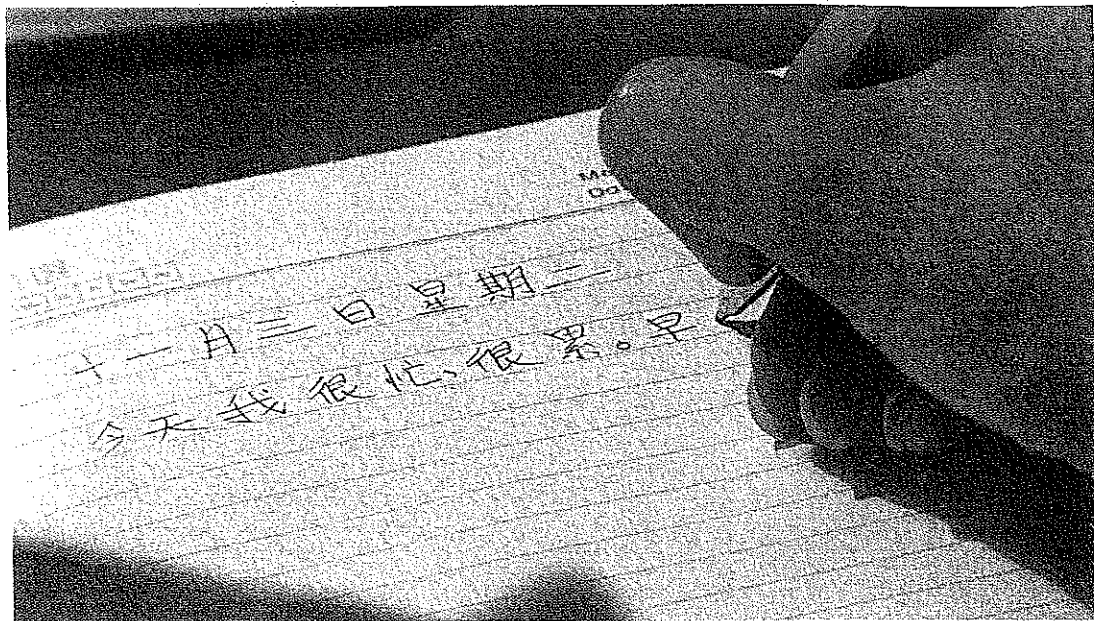 十一月三日星期二
今天我很忙、很累。早